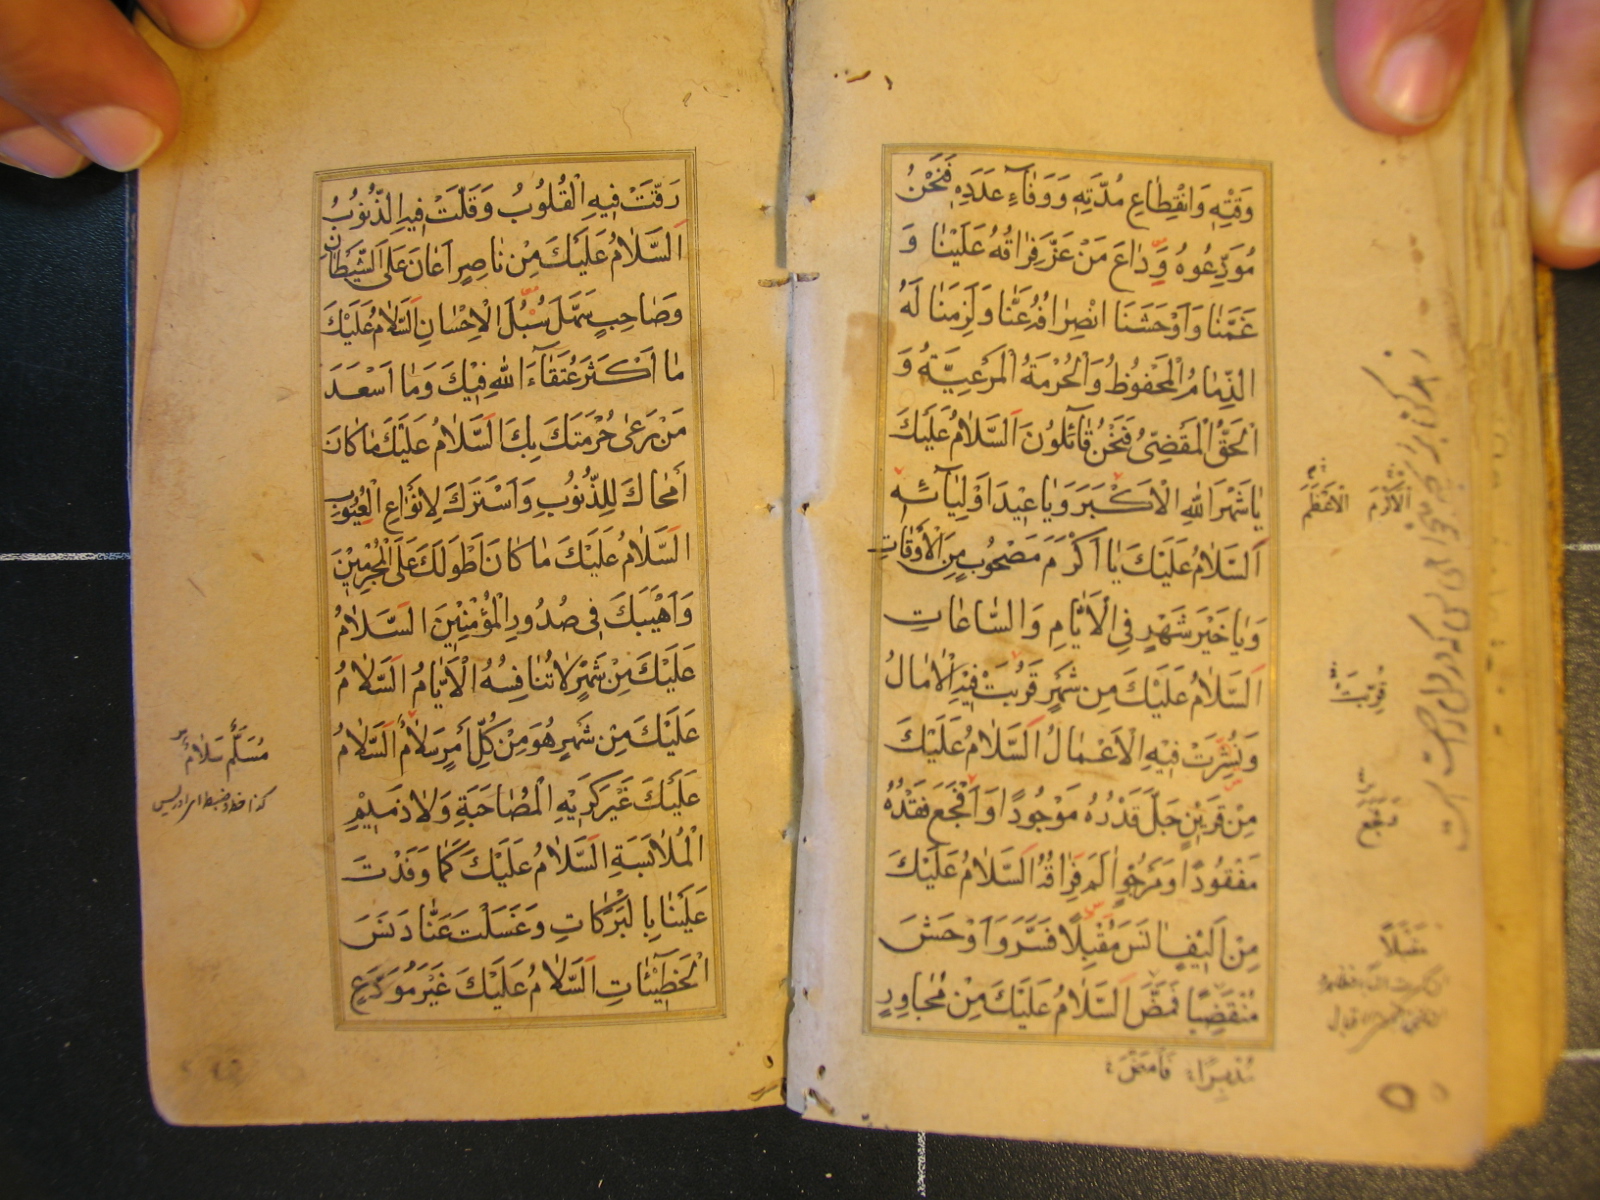 وَقْتِهِ وَانْقِطَاعِ مُدَّتِهِ وَوَفَاءِ عَدَدِهِ فَنَحْنُ
مُوَدِّعُوهُ وِدَاعَ مَنْ عَزَّ فِرَاقُهُ عَلَيْنَا وَ
غَمَّنَا وَاَوْحَشَنَا انْصِرَافُهُ عَنَّا وَلَزِمَنَا لَهُ
الذِّمَامُ الْمَحْفُوظُ وَالْحُرْمَةُ الْمَرْعِيَّةُ وَ
الْحَقُّ الْمَقْضِىُّ فَنَحْنُ قَائِلُونَ اَلسَّلَامُ عَلَيْكَ
يَا شَهْرَ اللهِ الْاَكْبَرَ وَيَا عِيْدَ اَوْلِيَائِهِ
اَلسَّلَامُ عَلَيْكَ يَا اَكْرَمَ مَصْحُوبٍ مِنَ الْاَوْقَاتِ
وَيَا خَيْرَ شَهْرٍ فِي الْاَيَّامِ وَالسَّاعَاتِ
اَلسَّلَامُ عَلَيْكَ مِنْ شَهْرٍ قَرُبَتْ فِيْهِ الْاٰمَالُ
وَنُشِرَتْ فِيْهِ الْاَعْمَالُ اَلسَّلَامُ عَلَيْكَ
مِنْ قَرِيْنٍ جَلَّ قَدْرُهُ مَوْجُودًا وَاَفْجَعَ فَقْدُهُ
مَفْقُودًا وَمَرْجُوٍّ اٰلَمَ فِرَاقُهُ اَلسَّلَامُ عَلَيْكَ
مِنْ اَلِيْفٍ اٰنَسَ مُقْبِلًا فَسَرَّ وَاَوْحَشَ
مُنْقَضِيًا فَمَضَّ اَلسَّلَامُ عَلَيْكَ مِنْ مُجَاوِرٍ
الْاَكْرَم
الْاَعْظَم
قَرُبَتْ
رَقَّتْ فِيهِ الْقُلُوبُ وَقَلَّتْ فِيهِ الذُّنُوبُ
اَلسَّلَامُ عَلَيْكَ مِنْ نَاصِرٍ اَعَانَ عَلَى الشَّيْطَانِ
وَصَاحِبٍ سَهَّلَ سُبُلَ الْاِحْسَانِ اَلسَّلَامُ عَلَيْكَ
مَا اَكْثَرَ عُتَقَاءَ اللهِ فِيْكَ وَمَا اَسْعَدَ
مَنْ رَعٰى حُرْمَتَكَ بِكَ اَلسَّلَامُ عَلَيْكَ مَا كَانَ
اَمْحَاكَ لِلذُّنُوبِ وَاَسْتَرَكَ لِاَنْوَاعِ الْعُيُوبِ
اَلسَّلَامُ عَلَيْكَ مَا كَانَ اَطْوَلَكَ عَلَى الْمُجْرِمِيْنَ
وَاَهْيَبَكَ فِى صُدُورِ الْمُؤْمِنِيْنَ اَلسَّلَامُ
عَلَيْكَ مِنْ شَهْرٍ لَا تُنَافِسُهُ الْاَيَّامُ اَلسَّلَامُ
عَلَيْكَ مِنْ شَهْرٍ هُوَ مِنْ كُلِّ اَمْرٍ سَلَامٌ اَلسَّلَامُ
عَلَيْكَ غَيْرَ كَرِيْهِ الْمُصَاحَبَةِ وَلَا ذَمِيْمِ
الْمُلَابَسَةِ اَلسَّلَامُ عَلَيْكَ كَمَا وَفَدْتَ
عَلَيْنَا بِالْبَرَكَاتِ وَغَسَلْتَ عَنَّا دَنَسَ
الْخَطِيْئَاتِ اَلسَّلَامُ عَلَيْكَ غَيْرَ مُوَدَّعٍ
مُسَلَّمٌ سَلَامٌ